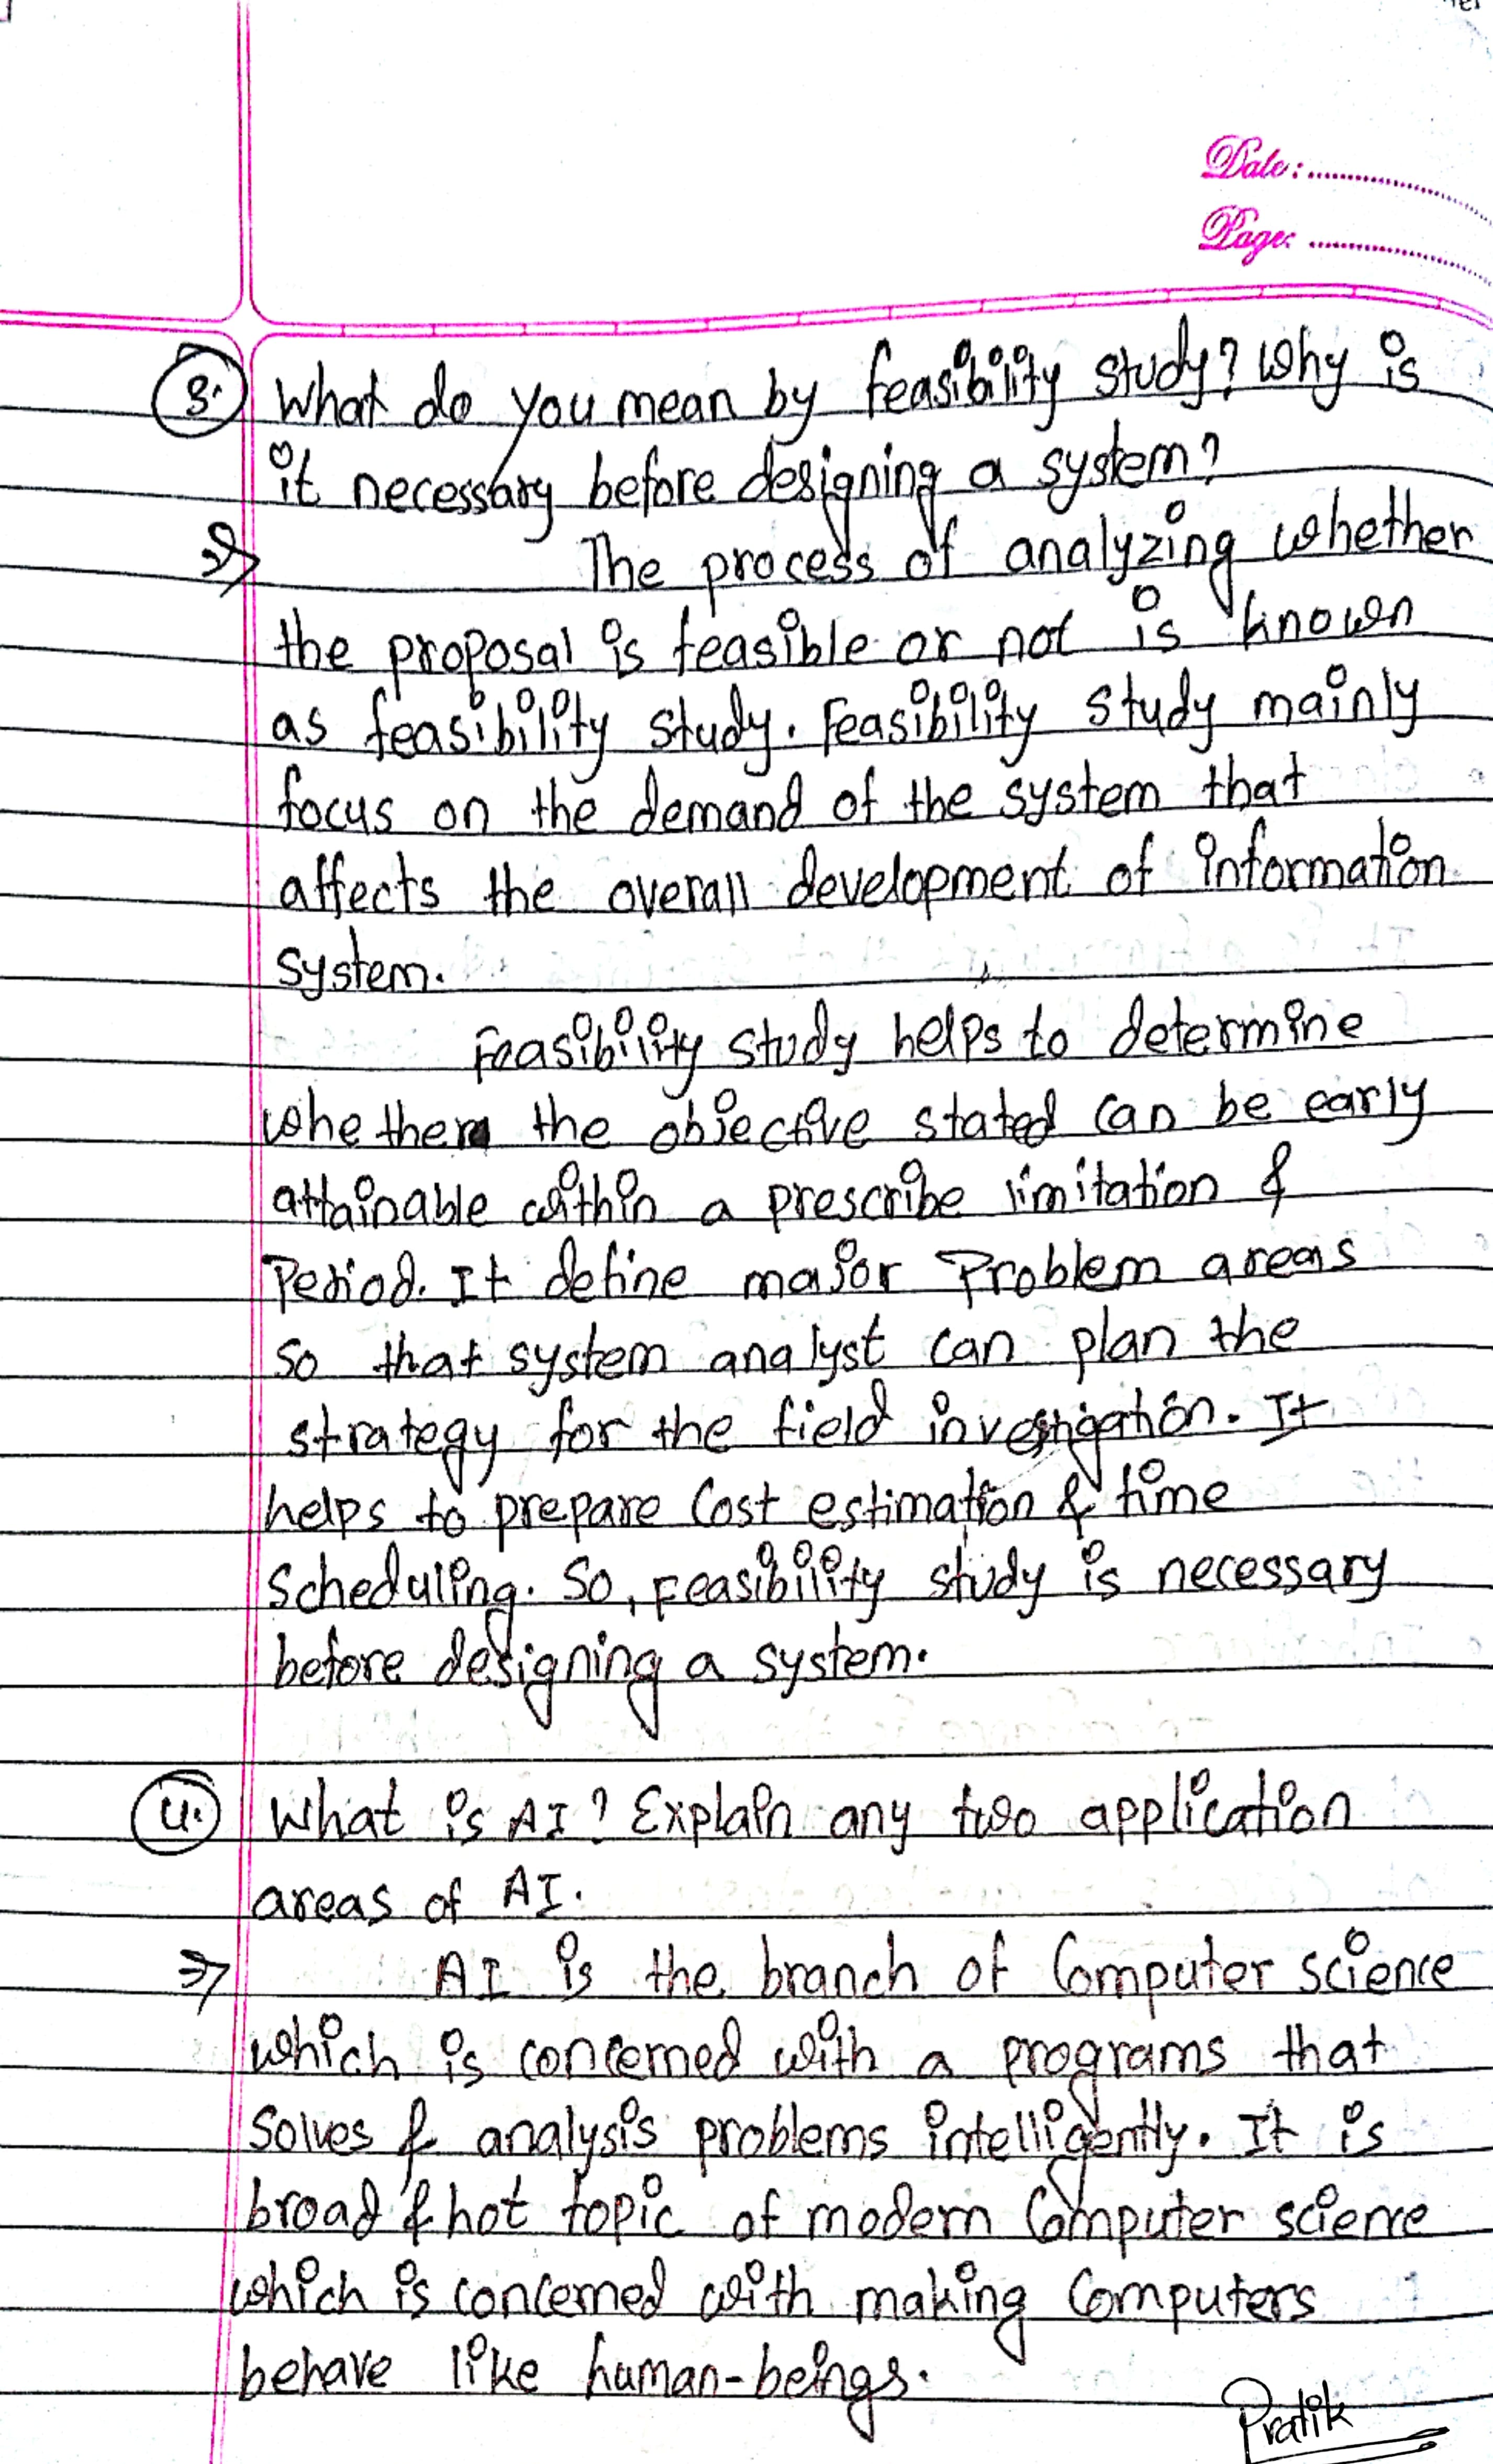 Date:
Page:
3. What do you mean by feasibility study? Why is
it necessary before designing a system?
⇒ The process of analyzing whether
the proposal is feasible or not is known
as feasibility study. Feasibility study mainly
focus on the demand of the system that
affects the overall development of information
system.
Feasibility study helps to determine
whether the objective stated can be early
attainable within a prescribe limitation &
Period. It define major Problem areas
so that system analyst can plan the
strategy for the field investigation. It
helps to prepare Cost estimation & time
Scheduling. So, Feasibility study is necessary
before designing a system.
4. What is AI? Explain any two application
areas of AI.
⇒ AI is the branch of Computer science
which is concerned with a programs that
Solves & analysis problems intelligently. It is
broad & hot topic of modern Computer science
which is concerned with making Computers
behave like human-beings.
Pratik